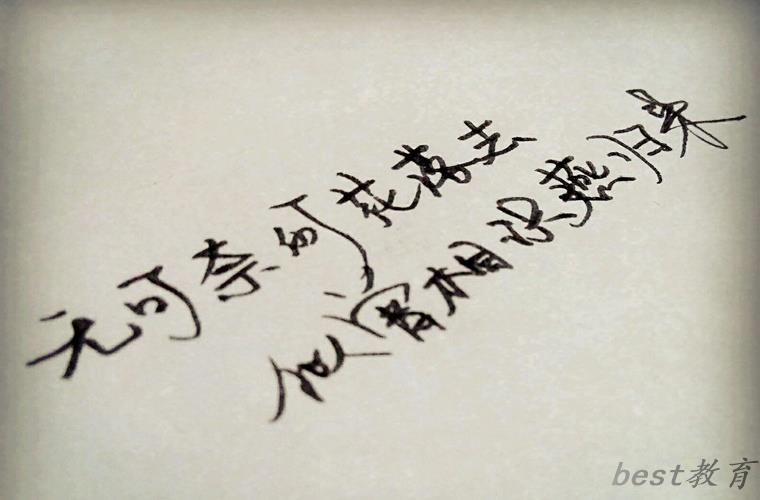 无可奈何花落去
似曾相识燕归来
best教育